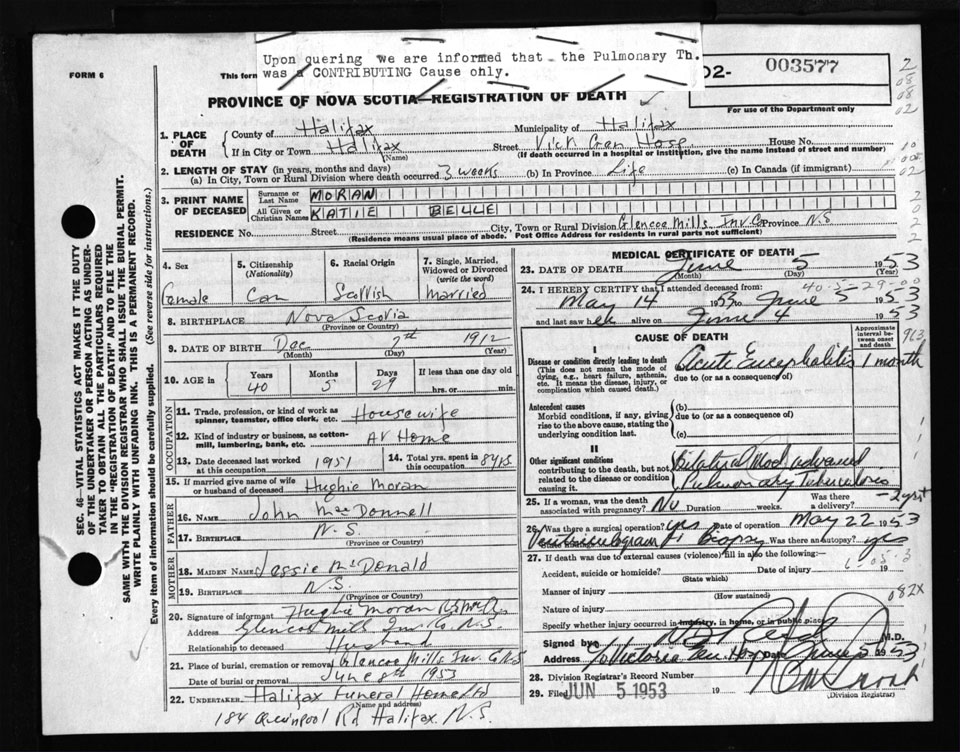 Upon quering we are informed that the Pulmonary Tb.
was a CONTRIBUTING Cause only.
FORM 6
This form
02- 003577
For use of the Department only
PROVINCE OF NOVA SCOTIA—REGISTRATION OF DEATH
1. PLACE OF DEATH
County of Halifax Municipality of Halifax
If in City or Town Halifax (Name) Street Vict Gen Hosp House No.
(If death occurred in a hospital or institution, give the name instead of street and number)
2. LENGTH OF STAY (in years, months and days)
(a) In City, Town or Rural Division where death occurred 3 weeks (b) In Province Life (c) In Canada (if immigrant)
3. PRINT NAME OF DECEASED
Surname or Last Name MORAN
All Given or Christian Names KATIE BELLE
RESIDENCE No. Street City, Town or Rural Division Glencoe Mills Inv. Co Province N.S
(Residence means usual place of abode. Post Office Address for residents in rural parts not sufficient)
4. Sex Female
5. Citizenship (Nationality) Can
6. Racial Origin Scttish
7. Single, Married, Widowed or Divorced (write the word) Married
8. BIRTHPLACE Nova Scotia
(Province or Country)
9. DATE OF BIRTH Dec 7th 1912
(Month) (Day) (Year)
10. AGE in Years 40 Months 5 Days 29 If less than one day old hrs. or min.
OCCUPATION
11. Trade, profession, or kind of work as spinner, teamster, office clerk, etc. Housewife
12. Kind of industry or business, as cotton-mill, lumbering, bank, etc. At Home
13. Date deceased last worked at this occupation 1951
14. Total yrs. spent in this occupation 8 yrs.
15. If married give name of wife or husband of deceased Hughie Moran
FATHER
16. NAME John MacDonnell
17. BIRTHPLACE N.S.
(Province or Country)
MOTHER
18. MAIDEN NAME Jessie McDonald
19. BIRTHPLACE N.S.
(Province or Country)
20. Signature of informant Hughie Moran
Address Glencoe Mill Inv. Co. N.S.
Relationship to deceased Husband
21. Place of burial, cremation or removal Glencoe Mills Inv. C. N.S
Date of burial or removal June 8th 1953
22. UNDERTAKER Halifax Funeral Home Ltd
(Name and address)
184 Quinpool Rd Halifax N.S.
MEDICAL CERTIFICATE OF DEATH
23. DATE OF DEATH June 5 1953
(Month) (Day) (Year)
24. I HEREBY CERTIFY that I attended deceased from: 40-5-29-00
May 14 1953 to June 5 1953
and last saw her alive on June 4 1953
CAUSE OF DEATH
Approximate interval between onset and death
I
Disease or condition directly leading to death
(This does not mean the mode of dying, e.g., heart failure, asthenia, etc. It means the disease, injury, or complication which caused death.)
Acute Encephalitis 1 month
due to (or as a consequence of)
Antecedent causes
Morbid conditions, if any, giving rise to the above cause, stating the underlying condition last.
(b)
due to (or as a consequence of)
(c)
II
Other significant conditions contributing to the death, but not related to the disease or condition causing it.
Bilateral Mod. advanced
Pulmonary Tuberculosis - 2 yrs +
25. If a woman, was the death associated with pregnancy? No Duration weeks. Was there a delivery?
26. Was there a surgical operation? yes Date of operation May 22 1953
Ventriculogram & Biopsy Was there an autopsy? yes
27. If death was due to external causes (violence) fill in also the following:—
Accident, suicide or homicide? Date of injury 19
(State which)
Manner of injury
(How sustained)
082X
Nature of injury
Specify whether injury occurred in industry, in home, or in public place
Signed by M.D.
Address Victoria Gen Hosp Date June 5 1953
28. Division Registrar's Record Number
29. Filed JUN 5 1953 19
(Division Registrar)
SEC. 46—VITAL STATISTICS ACT MAKES IT THE DUTY
OF THE UNDERTAKER OR PERSON ACTING AS UNDER-
TAKER TO OBTAIN ALL THE PARTICULARS REQUIRED
IN THE "REGISTRATION OF DEATH" AND TO FILE THE
SAME WITH THE DIVISION REGISTRAR WHO SHALL ISSUE THE BURIAL PERMIT.
WRITE PLAINLY WITH UNFADING INK. THIS IS A PERMANENT RECORD.
Every item of information should be carefully supplied. (See reverse side for instructions.)